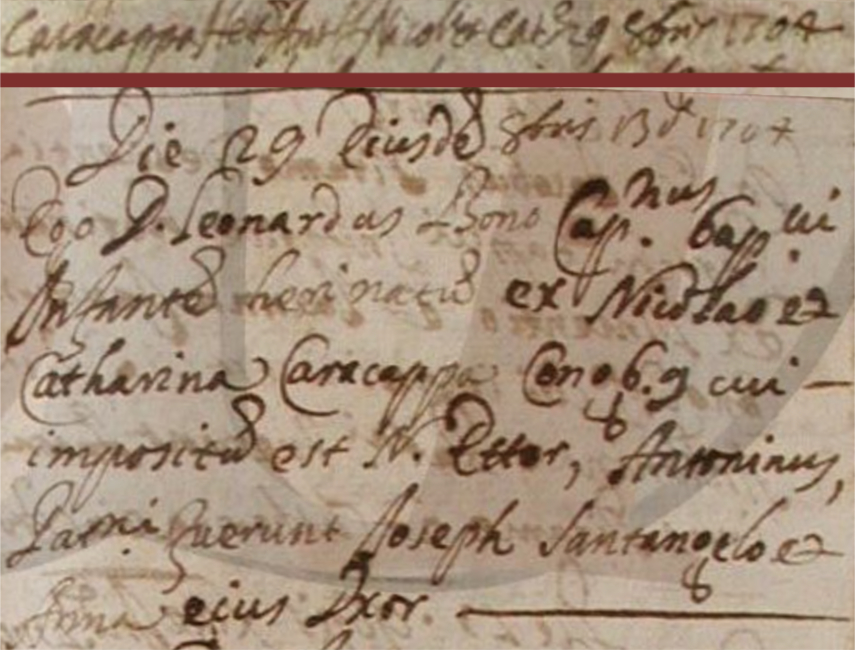 Caracappa Ettor Ant. Nicolò e Cath. 29 8bris 1704
Die 29 Eiusdē 8bris 13 Id 1704
Ego D. Leonardus Bono Capnus. Bap.ui
Infantē heri natū ex Nicolao et
Catharina Caracappa Conjb.9 cui
impositū est N. Ettor, Antoninus,
Patrni fuerunt Joseph Santangelo et
Anna eius Vxor.